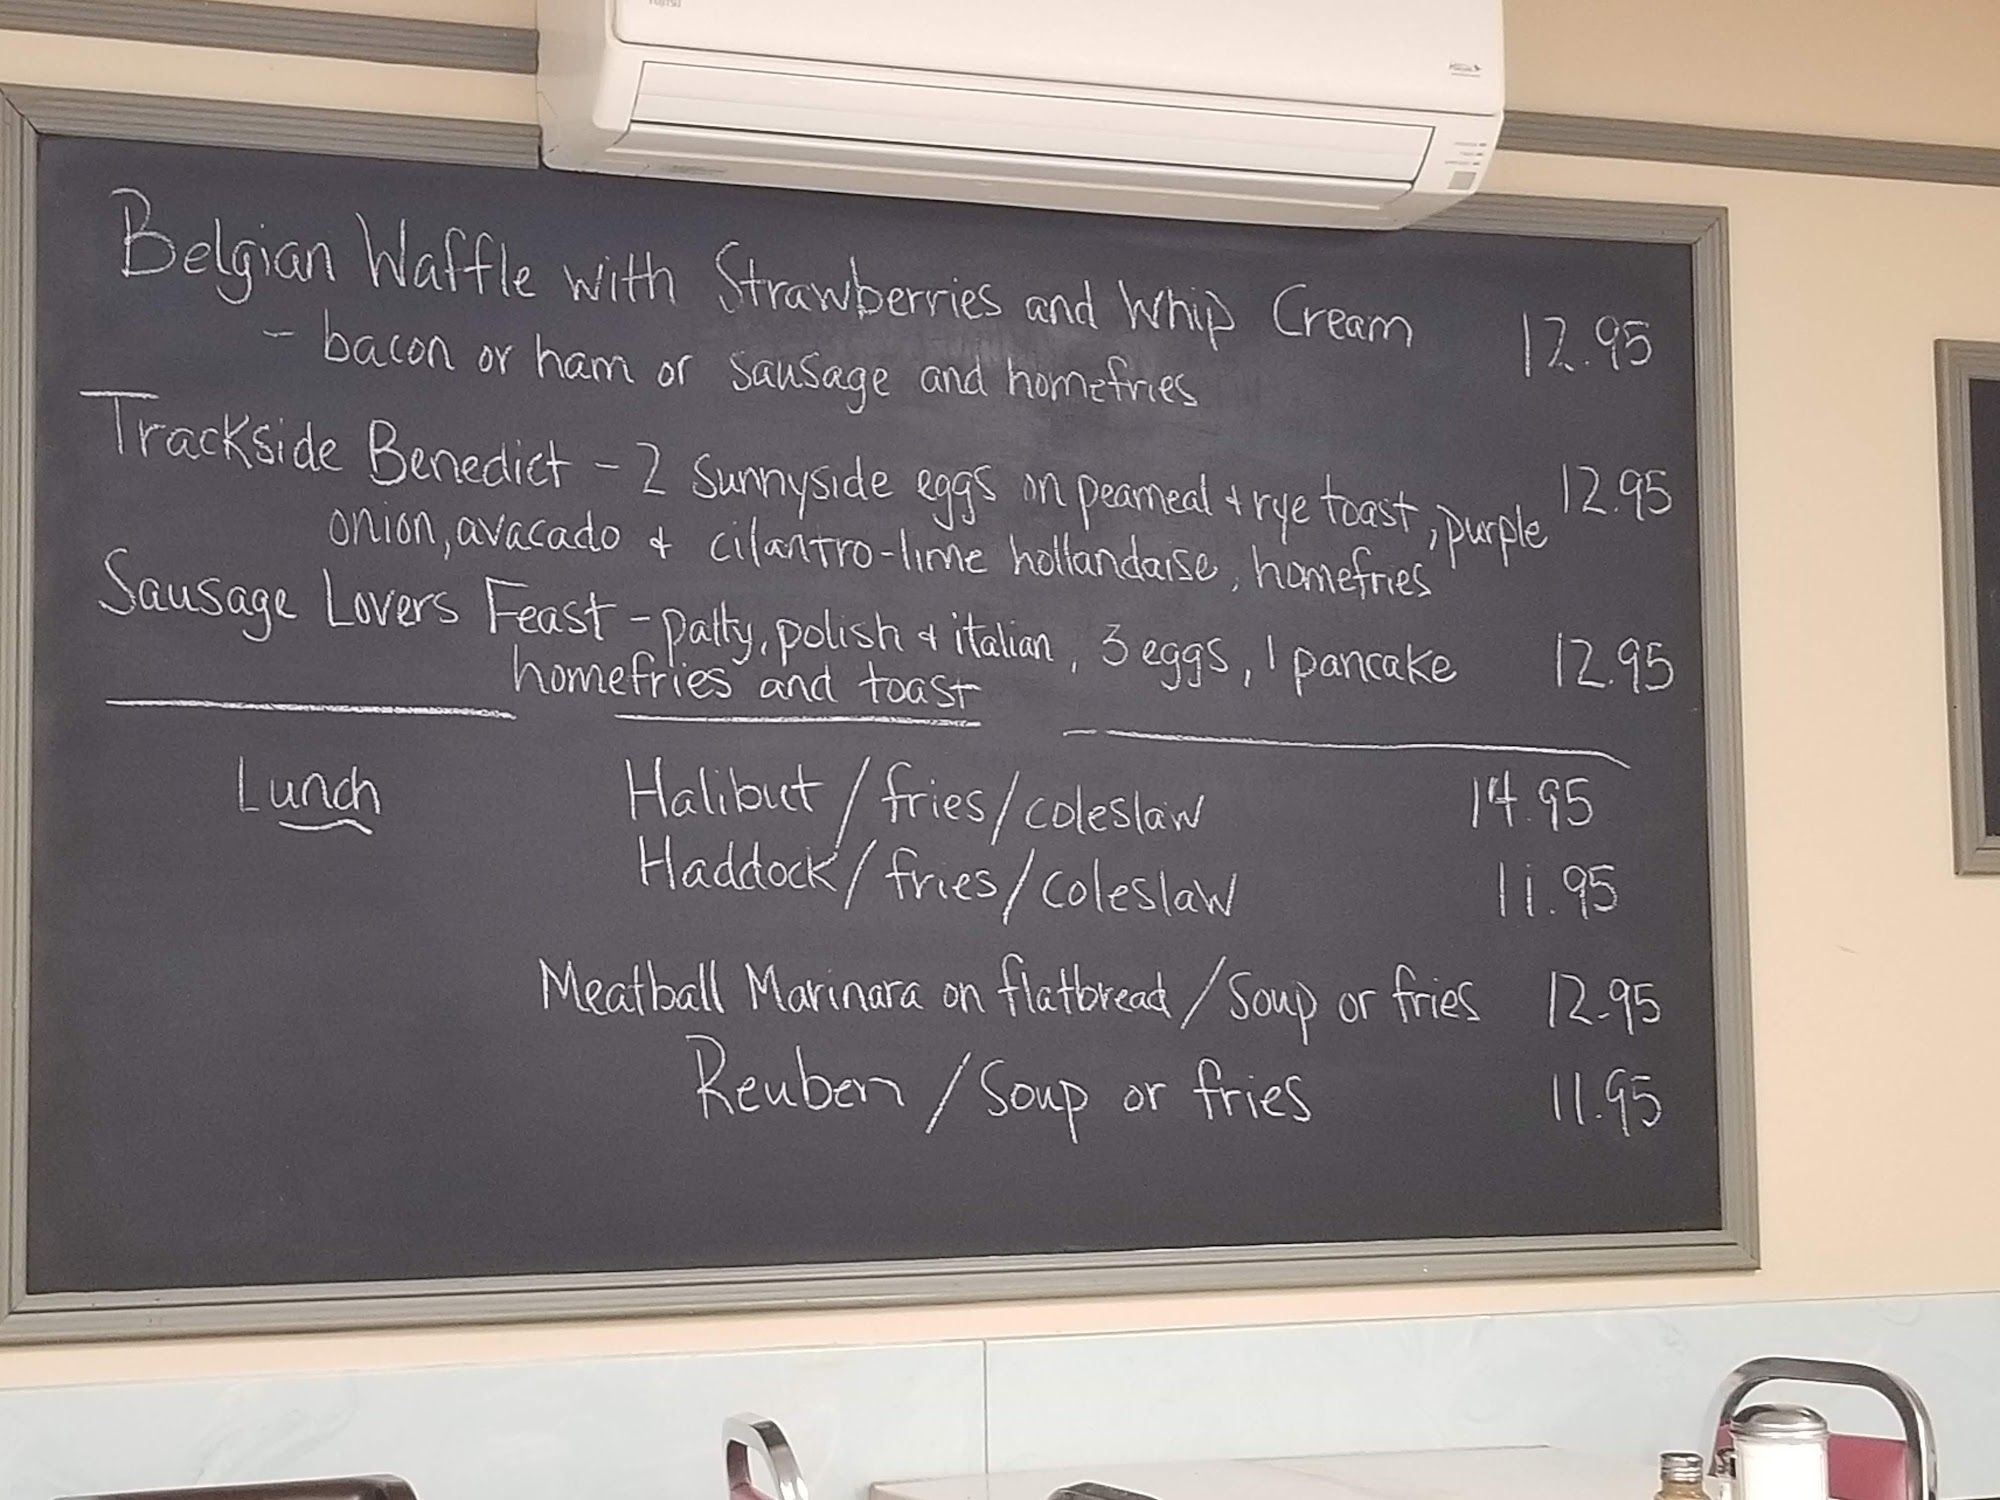 FUJITSU
Belgian Waffle with Strawberries and Whip Cream 12.95
- bacon or ham or sausage and homefries
Trackside Benedict - 2 sunnyside eggs on peameal + rye toast, purple 12.95
onion, avacado + cilantro-lime hollandaise, homefries
Sausage Lovers Feast - patty, polish + italian, 3 eggs, 1 pancake 12.95
homefries and toast
Lunch
Halibut / fries / coleslaw 14.95
Haddock / fries / coleslaw 11.95
Meatball Marinara on flatbread / Soup or fries 12.95
Reuben / Soup or fries 11.95